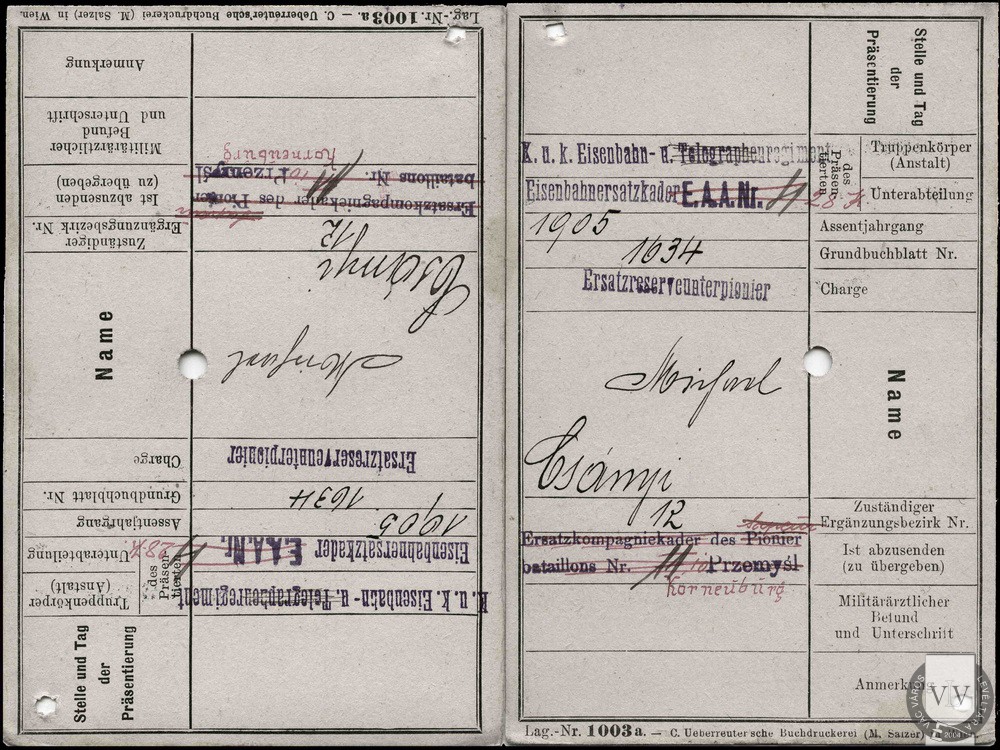 Lag.-Nr. 1003 a. — C. Ueberreuter'sche Buchdruckerei (M. Salzer) in Wien.
Stelle und Tag
der
Präsentierung
Truppenkörper
(Anstalt)
des
Präsen-
tierten
Unterabteilung
K. u. k. Eisenbahn- u. Telegraphenregiment
Eisenbahnersatzkader E.A.A.Nr. 4 28
Assentjahrgang
1905
Grundbuchblatt Nr.
1634
Charge
Ersatzreserveunterpionier
Name
Michael
Csányi
Zuständiger
Ergänzungsbezirk Nr.
12
Ist abzusenden
(zu übergeben)
Ersatzkompagniekader des Pionier
bataillons Nr. 10 Przemyśl
Korneuburg
Militärärztlicher
Befund
und Unterschrift
Anmerkung
Stelle und Tag
der
Präsentierung
Truppenkörper
(Anstalt)
des
Präsen-
tierten
Unterabteilung
K. u. k. Eisenbahn- u. Telegraphenregiment
Eisenbahnersatzkader E.A.A.Nr. 4 28
Assentjahrgang
1905
Grundbuchblatt Nr.
1634
Charge
Ersatzreserveunterpionier
Name
Michael
Csányi
Zuständiger
Ergänzungsbezirk Nr.
12
Sopron
Ist abzusenden
(zu übergeben)
Ersatzkompagniekader des Pionier
bataillons Nr. 10 Przemyśl
Korneuburg
Militärärztlicher
Befund
und Unterschrift
Anmerkung
Lag.-Nr. 1003 a. — C. Ueberreuter'sche Buchdruckerei (M. Salzer) in
VÁC VÁROS LEVÉLTÁRA
VVL
2004